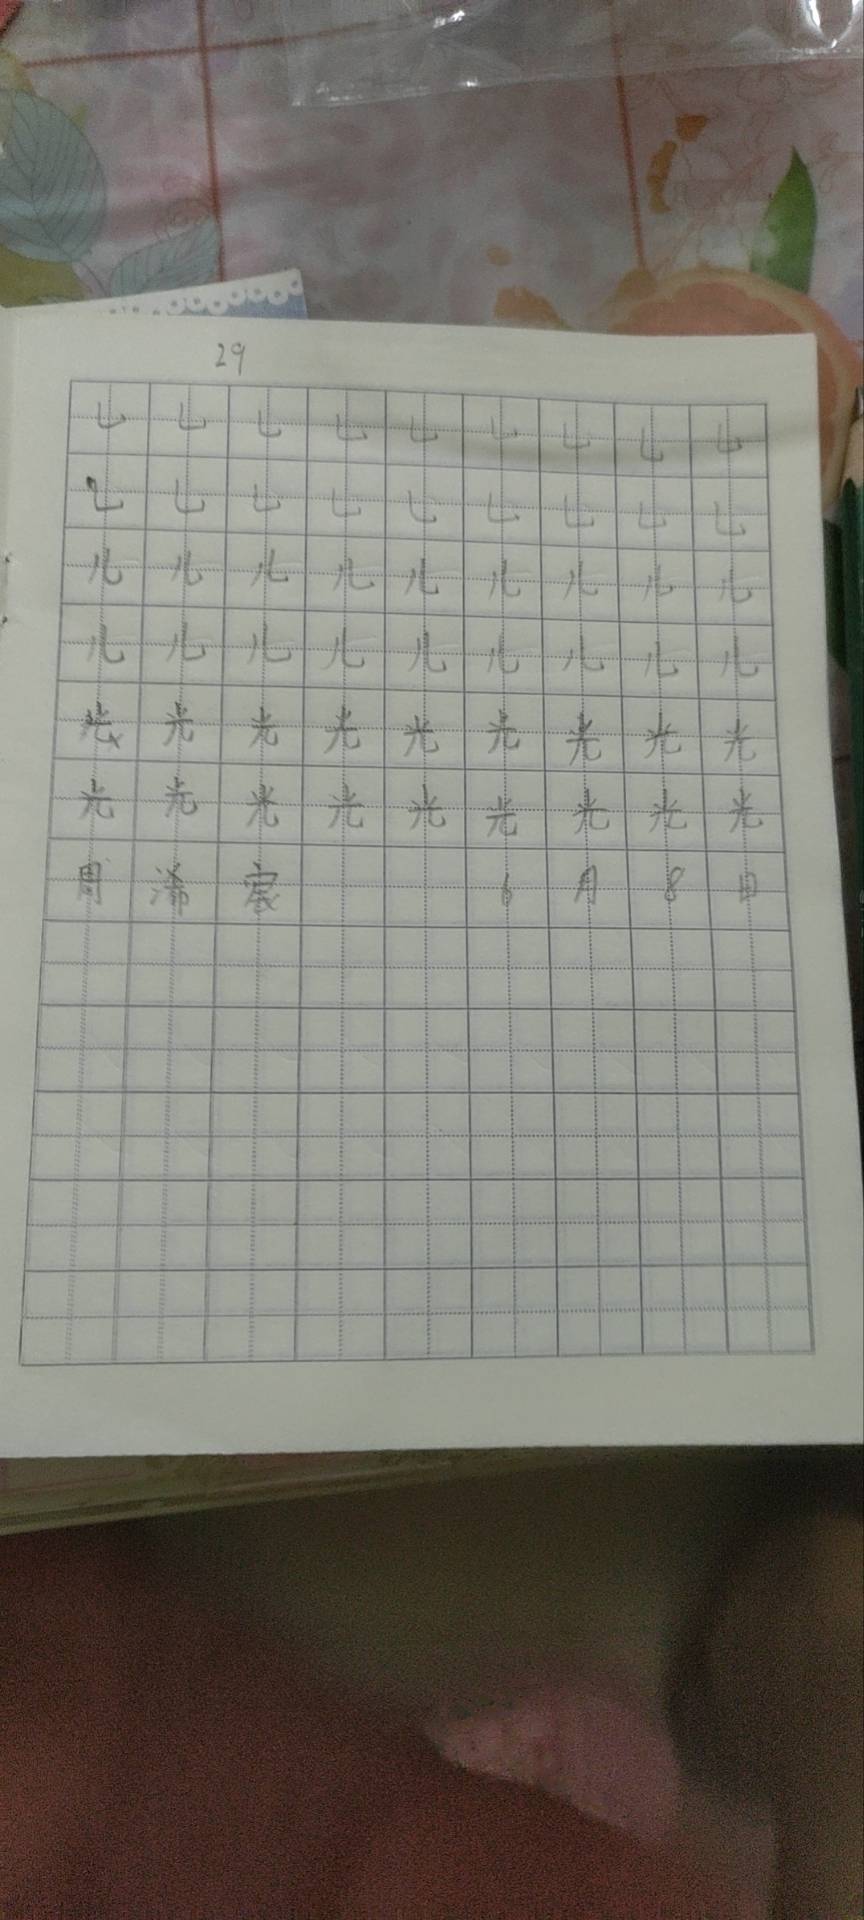 29
乚 乚 乚 乚 乚 乚 乚 乚 乚
乚 乚 乚 乚 乚 乚 乚 乚 乚
儿 儿 儿 儿 儿 儿 儿 儿 儿
儿 儿 儿 儿 儿 儿 儿 儿 儿
光 光 光 光 光 光 光 光 光
光 光 光 光 光 光 光 光 光
周 宸 6 月 8 日